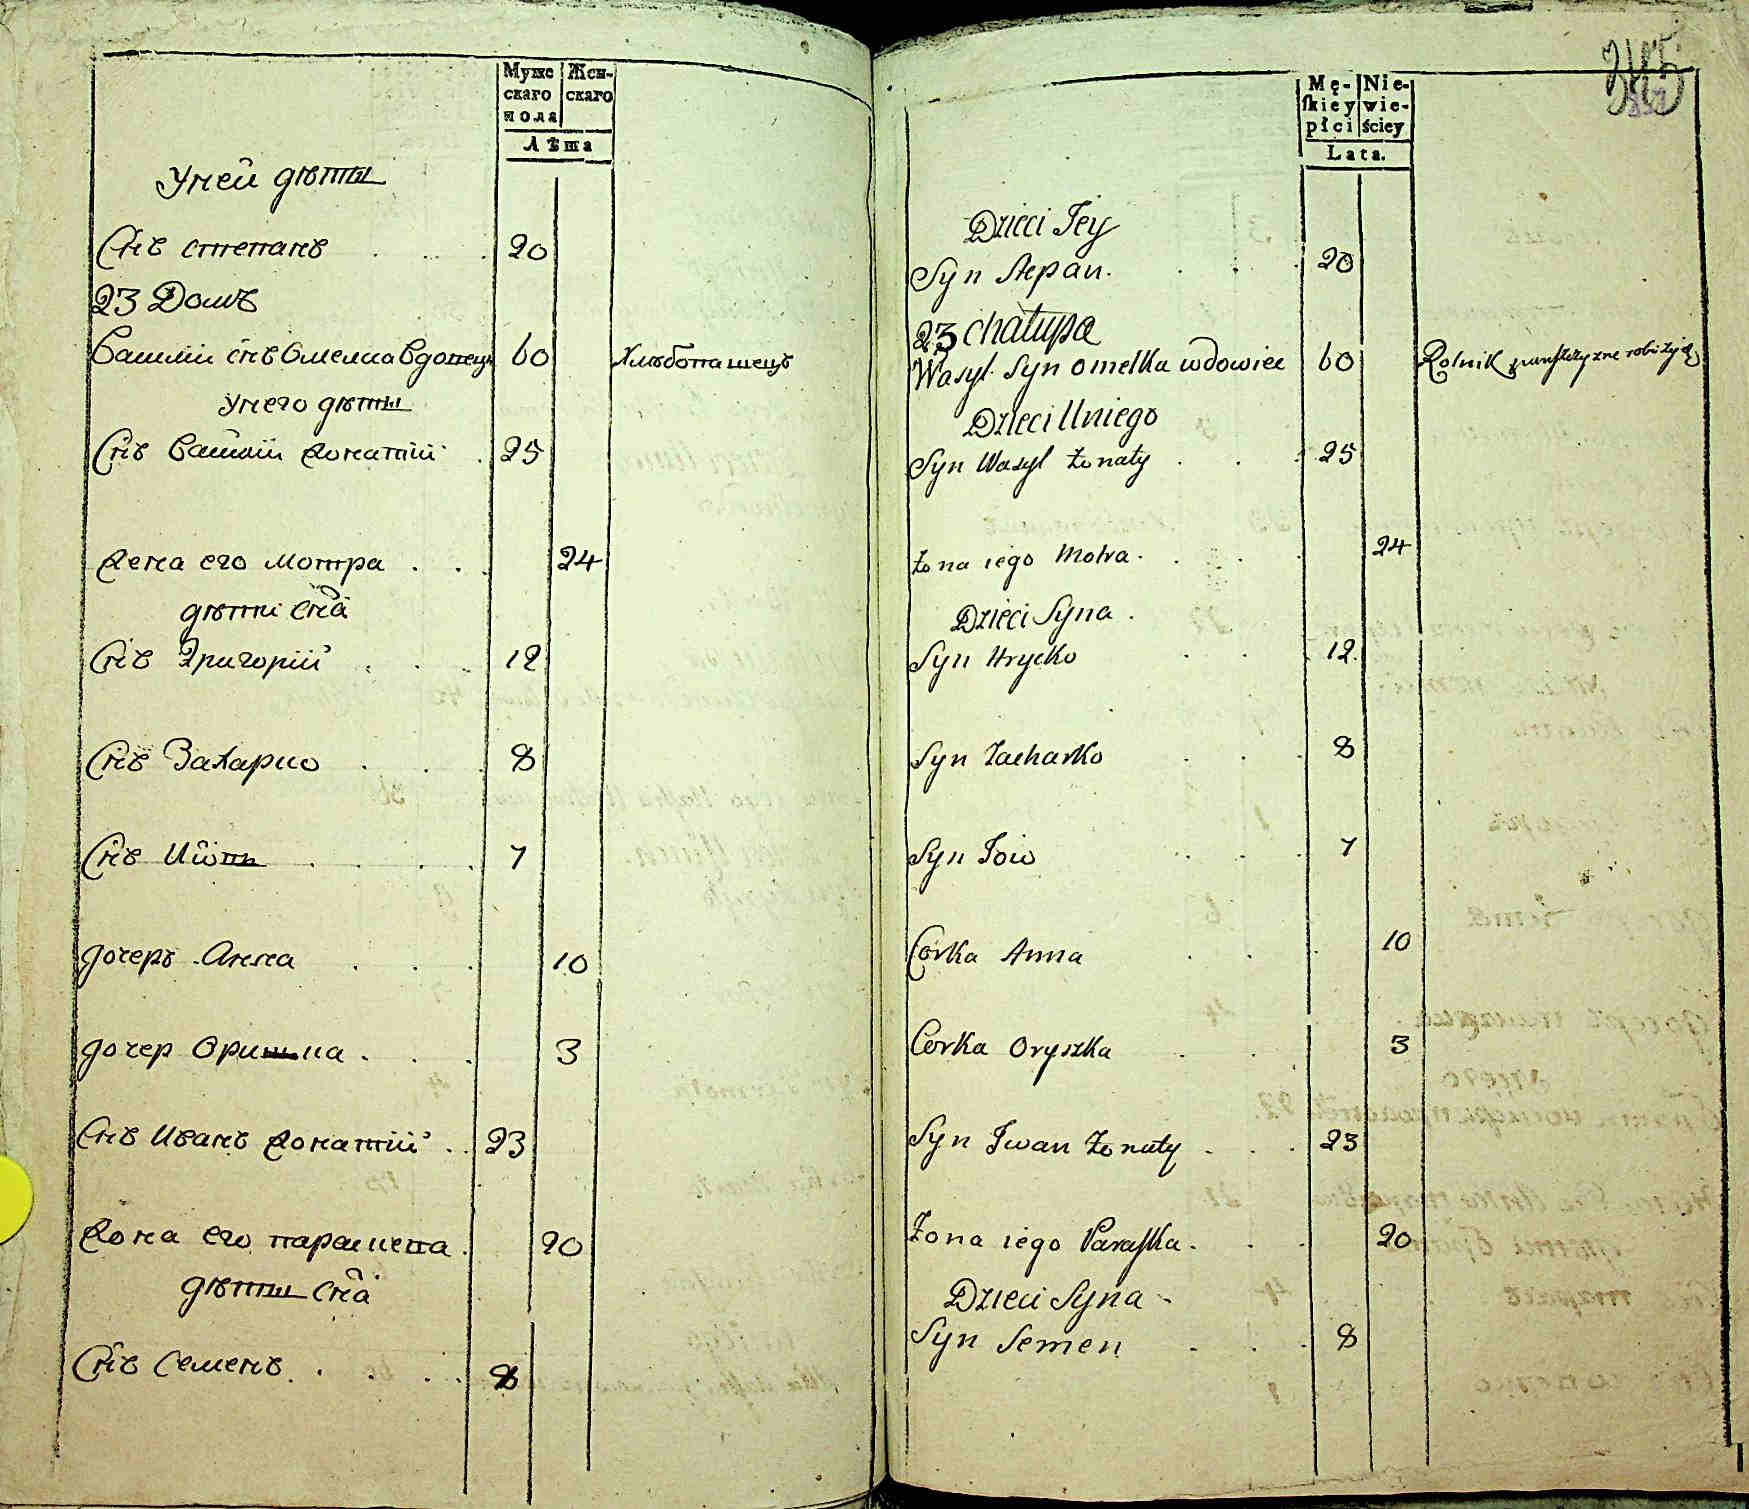 Муже
скаго
пола
Жен-
скаго
Лѣта
Унеи дѣти
Снъ степанъ 20
23 Домъ
Василїи снъ Омелка вдовецъ 60 Хлѣбопашецъ
Унего дѣти
Снъ василїи жонатїи 25
жена его мотра 24
дѣти сна
Снъ Григорїи 12
Снъ Захарко 8
Снъ Иовъ 7
дочерь Анна 10
дочер Оришка 3
Снъ Иванъ жонатїи 23
жона его параскева 20
дѣти сна
Снъ семенъ 8
Mę-
skiey
płci
Nie-
wie-
ściey
Lata.
Dzieci Jey
Syn Stepan. 20
23 chałupa
Wasyl Syn omelka wdowiec 60 Rolnik
Dzieci Uniego
Syn Wasyl żonaty 25
żona iego Motra 24
Dzieci Syna
Syn Hrycko 12
Syn Zacharko 8
Syn Jow 7
Corka Anna 10
Corka Oryszka 3
Syn Iwan żonaty 23
Żona iego Paraska 20
Dzieci Syna
Syn Semen 8